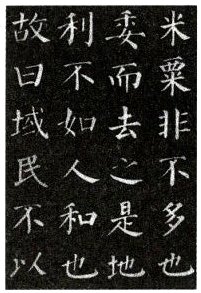 米粟非不多也
委而去之是地
利不如人和也
故曰域民不以